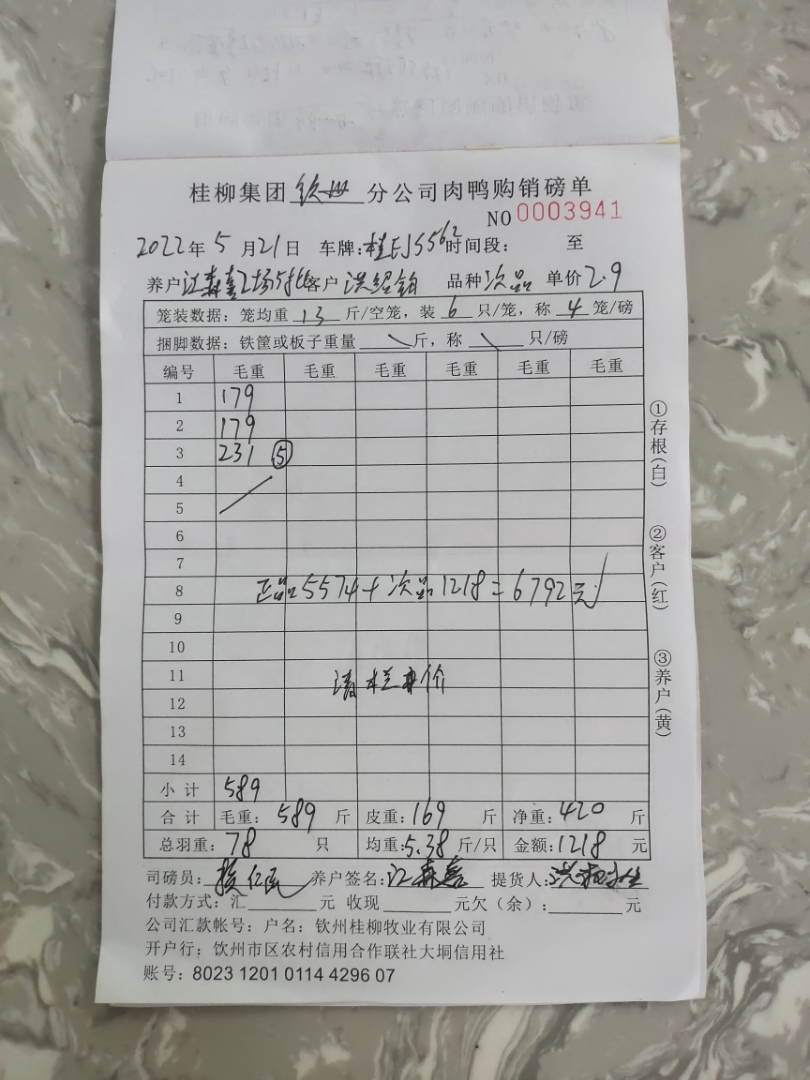 桂柳集团 钦州 分公司肉鸭购销磅单
NO 0003941
2022年5月21日 车牌:桂EJ5562时间段: 至
养户江森喜2场5批客户洪绍 品种次品 单价2.9
笼装数据: 笼均重 13 斤/空笼, 装 6 只/笼, 称 4 笼/磅
捆脚数据: 铁筐或板子重量 斤, 称 只/磅
编号 毛重 毛重 毛重 毛重 毛重 毛重
1 179
2 179
3 231 ⑤
4
5
6
7
8 正品5574+次品1218=6792元
9
10
11 清栏 价
12
13
14
小计 589
合计 毛重: 589 斤 皮重: 169 斤 净重: 420 斤
总羽重: 78 只 均重:5.38斤/只 金额:1218 元
司磅员: 养户签名: 江森喜 提货人:洪
付款方式: 汇 元 收现 元欠(余): 元
公司汇款帐号: 户名: 钦州桂柳牧业有限公司
开户行: 钦州市区农村信用合作联社大垌信用社
账号: 8023 1201 0114 4296 07
①存根(白)
②客户(红)
③养户(黄)